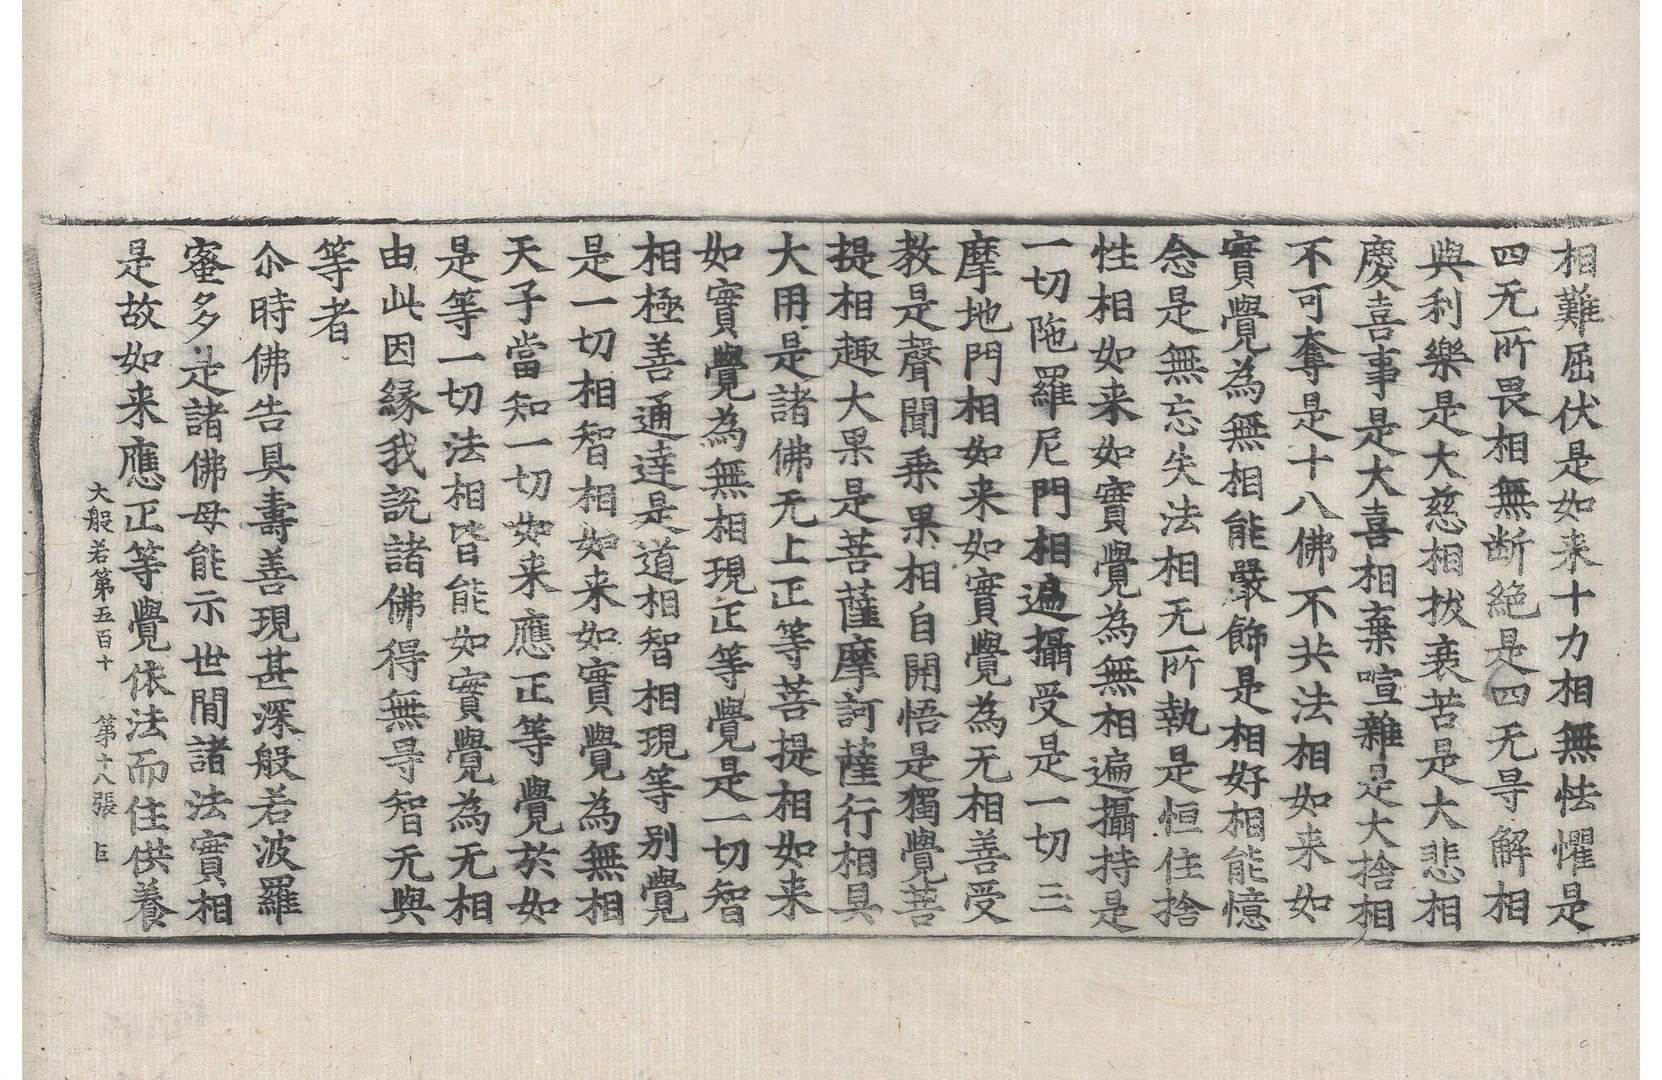 相難屈伏是如来十力相無怯懼是
四无所畏相無断絶是四无㝵解相
與利樂是大慈相拔衰苦是大悲相
慶喜事是大喜相棄喧雜是大捨相
不可奪是十八佛不共法相如来如
實覺為無相能嚴飾是相好相能憶
念是無忘失法相无所執是恒住捨
性相如来如實覺為無相遍攝持是
一切陁羅尼門相遍攝受是一切三
摩地門相如来如實覺為无相善受
教是聲聞乗果相自開悟是獨覺菩
提相趣大果是菩薩摩訶薩行相具
大用是諸佛无上正等菩提相如来
如實覺為無相現正等覺是一切智
相極善通達是道相智相現等别覺
是一切相智相如来如實覺為無相
天子當知一切如来應正等覺於如
是等一切法相皆能如實覺為无相
由此因縁我説諸佛得無㝵智无與
等者
尒時佛告具壽善現甚深般若波羅
蜜多是諸佛母能示世間諸法實相
是故如来應正等覺依法而住供養
大般若第五百十　第十八張　巨